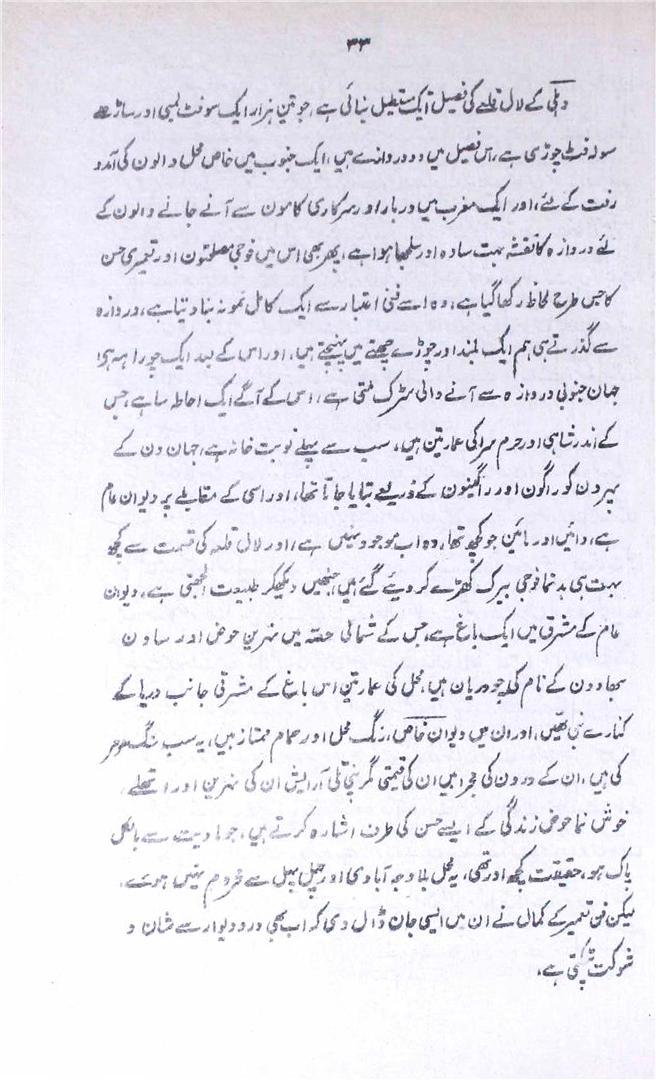 ۳۳
دہلی کے لال قلعے کی فصیل ایک مستطیل بناتی ہے، جو تین ہزار ایک سو فٹ لمبی اور ساڑھے
سولہ فٹ چوڑی ہے، اس فصیل میں دو دروازے ہیں، ایک جنوب میں خاص محل والون کی آمد و
رفت کے لئے، اور ایک مغرب میں دربار اور سرکاری کامون سے آنے جانے والون کے
لئے دروازہ کا نقشہ بہت سادہ اور سلجھا ہوا ہے، پھر بھی اس میں فوجی مصلحتون اور تعمیری حسن
کا جس طرح لحاظ رکھا گیا ہے، وہ اسے فنی اعتبار سے ایک کامل نمونہ بنا دیتا ہے، دروازہ
سے گذرتے ہی ہم ایک بلند اور چوڑے چھتے میں پہنچتے ہیں، اور اس کے بعد ایک چوراہہ ہے،
جہان جنوبی دروازہ سے آنے والی سڑک ملتی ہے، اس کے آگے ایک احاطہ سا ہے، جس
کے اندر شاہی اور حرم سرا کی عمارتین ہیں، سب سے پہلے نوبت خانہ ہے، جہان دن کے
پہرون کو راگون اور راگنیون کے ذریعے بتایا جاتا تھا، اور اسی کے مقابلے پر دیوان عام
ہے، دائین اور بائین جو کچھ تھا، وہ اب موجود نہیں ہے، اور لال قلعہ کی قسمت سے کچھ
بہت ہی بدنما فوجی بیرک کھڑے کر دیئے گئے ہیں، جنھیں دیکھکر طبیعت الجھتی ہے، دیوان
عام کے مشرق میں ایک باغ ہے، جس کے شمالی حصہ میں نہرین حوض اور ساون
بھادون کے نام کی چودریان ہیں، محل کی عمارتین اس باغ کے مشرقی جانب دریا کے
کنارے بنی تھیں، اور ان میں دیوان خاص، رنگ محل اور حمام ممتاز ہیں، یہ سب سنگ مرمر
کی ہیں، ان کے درون کی محرابیں ان کی قیمتی مگر نپی تلی آرایش ان کی نہرین اور اتھلے
خوش نما حوض زندگی کے ایسے حسن کی طرف اشارہ کرتے ہیں، جو مادیت سے بالکل
پاک ہو، حقیقت کچھ اور تھی، یہ محل بلا وجہ آبادی اور چہل پہل سے محروم نہیں ہوئے،
لیکن فن تعمیر کے کمال نے ان میں ایسی جان ڈال دی کہ اب بھی در و دیوار سے شان و
شوکت ٹپکتی ہے،